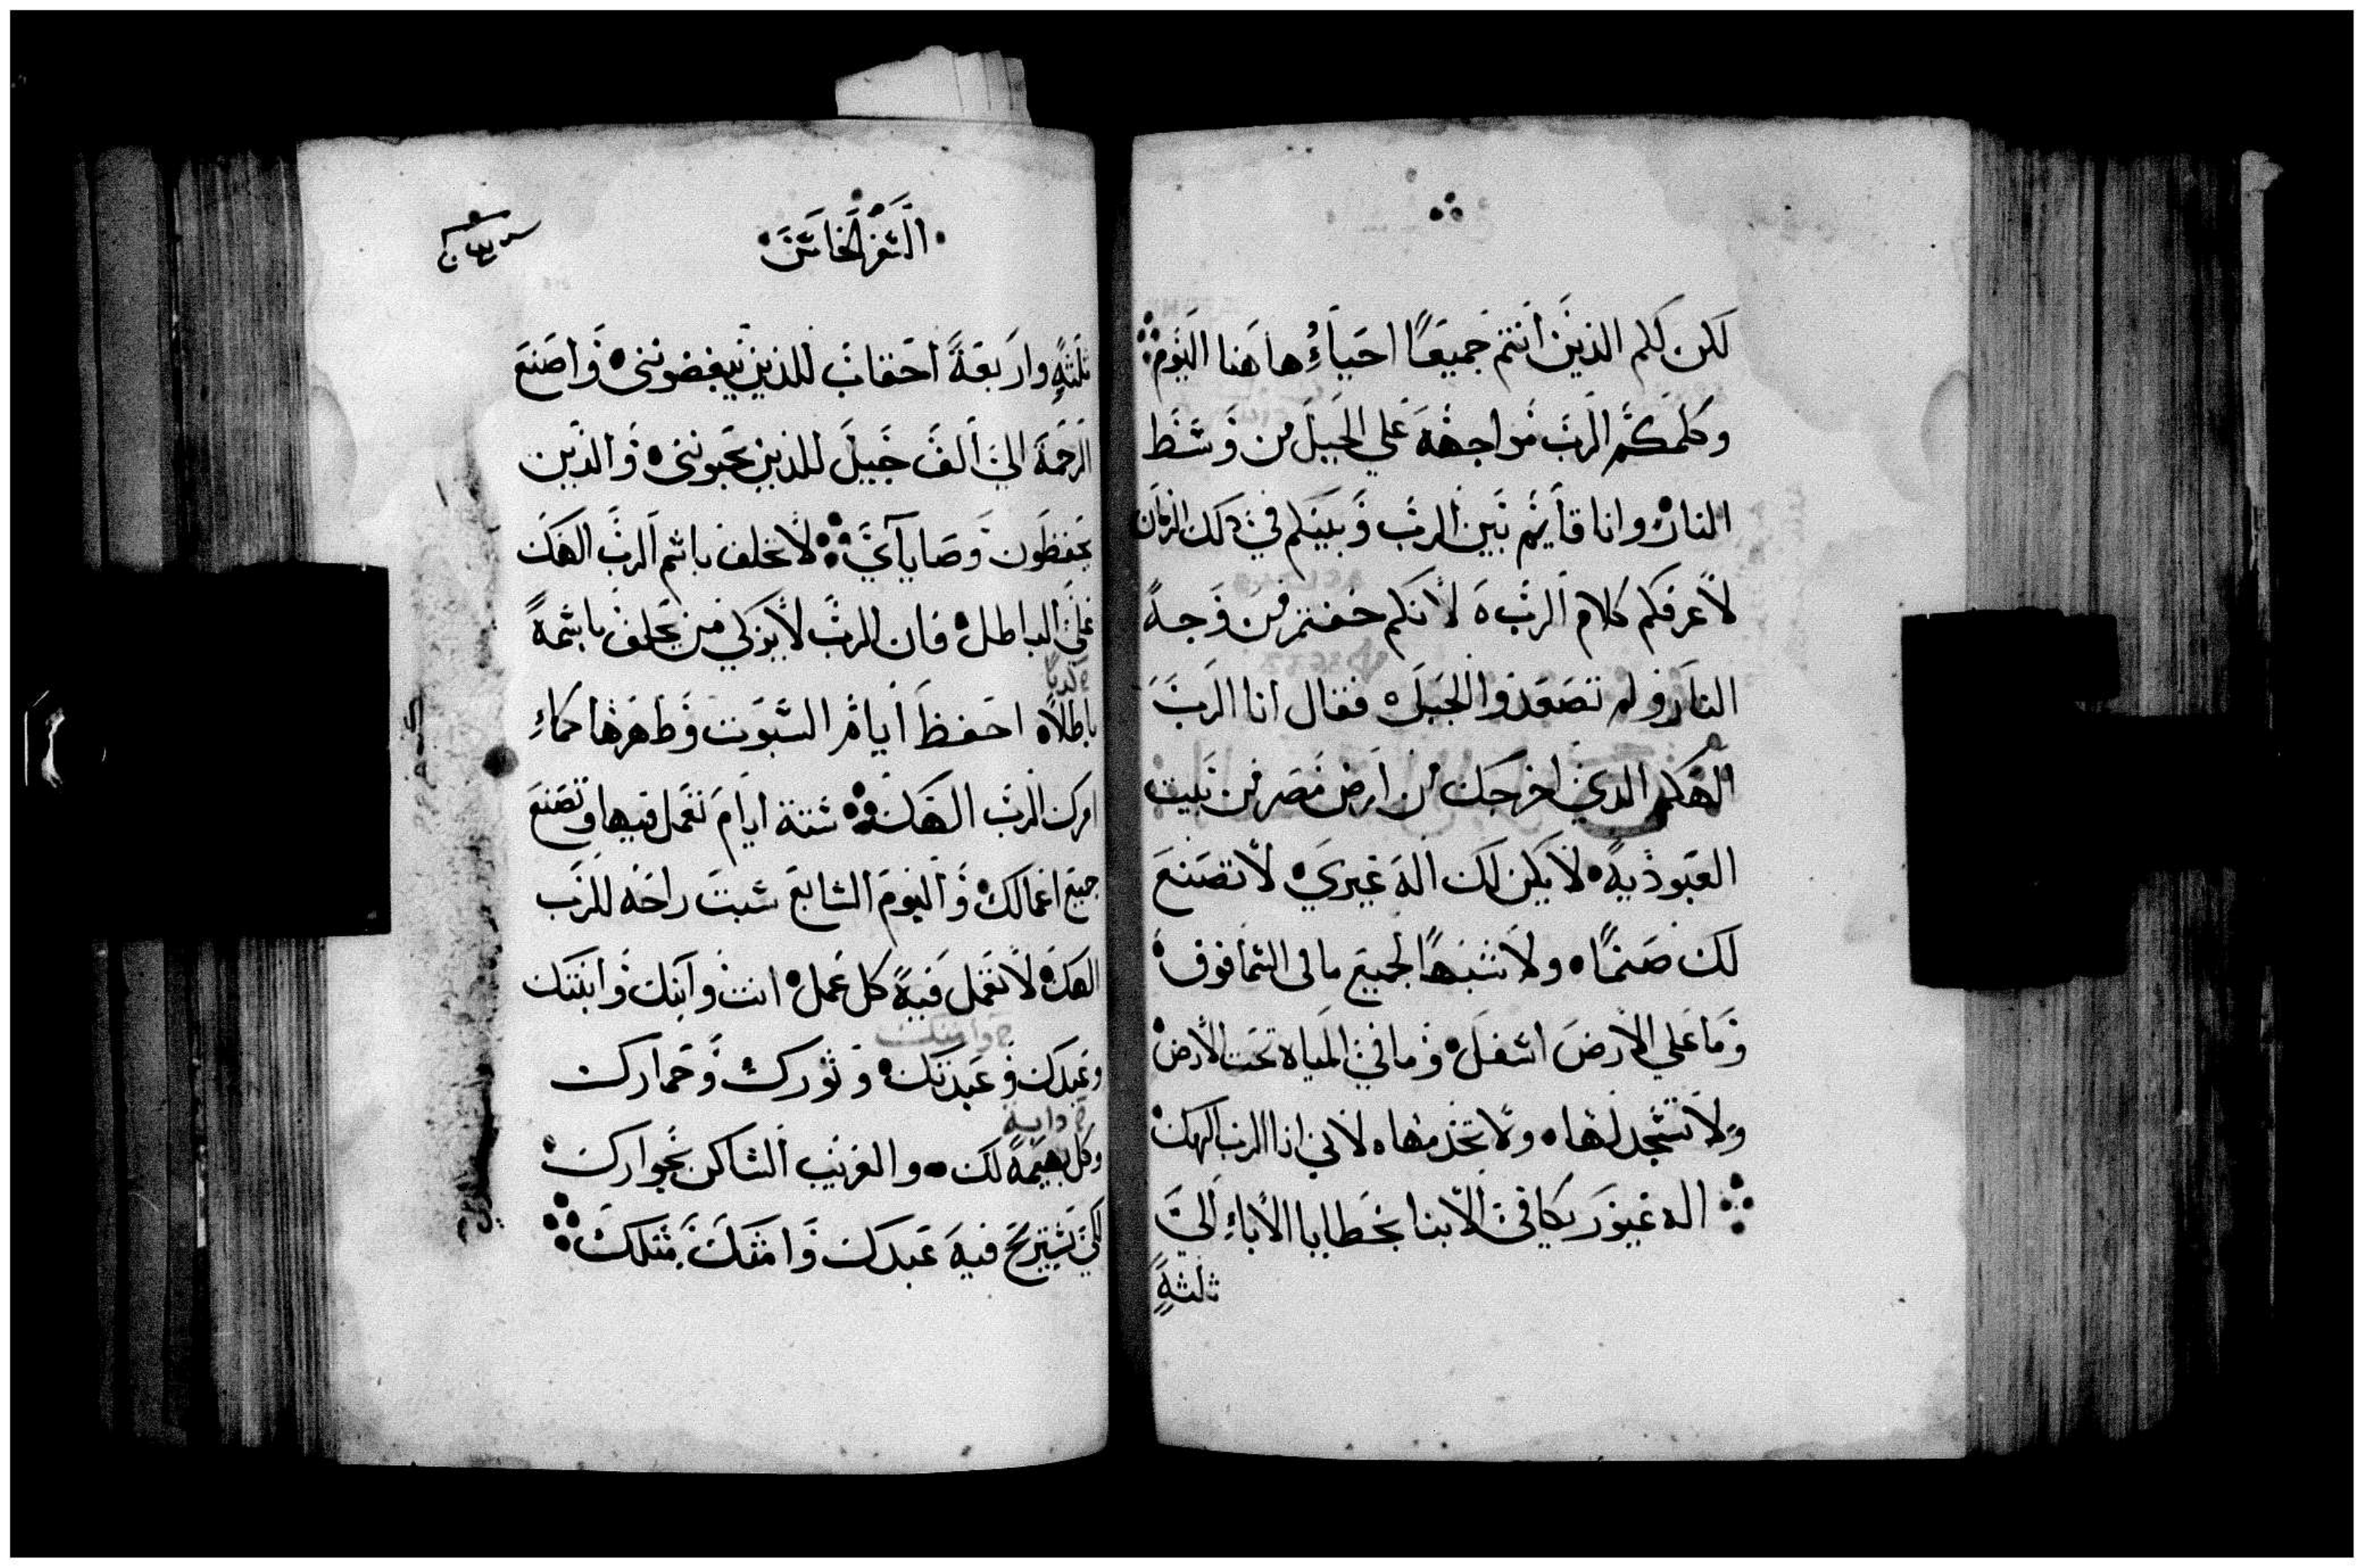 لكن لكم الذين انتم جميعًا احياءُ هاهنا اليوم
وكلمكم الرب مواجهة علي الجبل من وسط
النار وانا قايم بين الرب وبينكم في ذلك الزمان
لأعرفكم كلام الرب لأنكم خفتم من وجه
النار ولم تصعدوا الجبل فقال انا الرب
الهكم الذي اخرجك من ارض مصر من بيت
العبودية لا يكن لك اله غيري لا تصنع
لك صنمًا ولا شبهًا لجميع ما في السما فوق
وما علي الأرض اسفل وما في المياه تحت الأرض
ولا تسجد لها ولا تخدمها لاني انا الرب الهك
اله غيور يكافي الأبنا بخطايا الأباءِ الي
ثلثةٍ
السفر الخامس
ثلثةٍ واربعة احقاب للذين يبغضونني واصنع
الرحمة الي الف جيل للذين يحبونني والذين
يحفظون وصايآي لا تحلف باسم الرب الهك
علي الباطل فان الرب لا يزكي من يحلف باسمه
باطلاً احفظ ايام السبوت وطهرها كما
امرك الرب الهك ستة ايام تعمل فيها وتصنع
جميع اعمالك واليوم السابع سبت راحه للرب
الهك لا تعمل فيه كل عمل انت وابنك وابنتك
وامتك
وعبدك وعبدتك وثورك وحمارك
دابة
وكل بهيمة لك والغريب الساكن بجوارك
لكي يستريح فيه عبدك وامتك مثلك